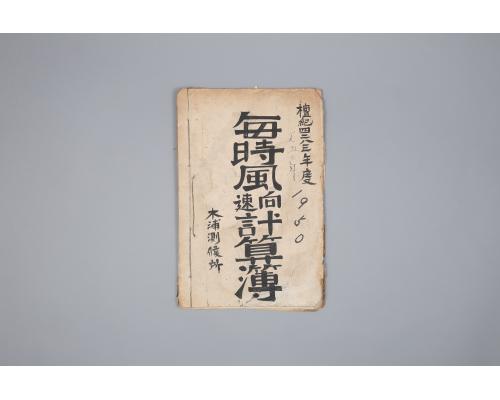 檀紀四二八三年度
1950
每時風向速計算簿
木浦測候所